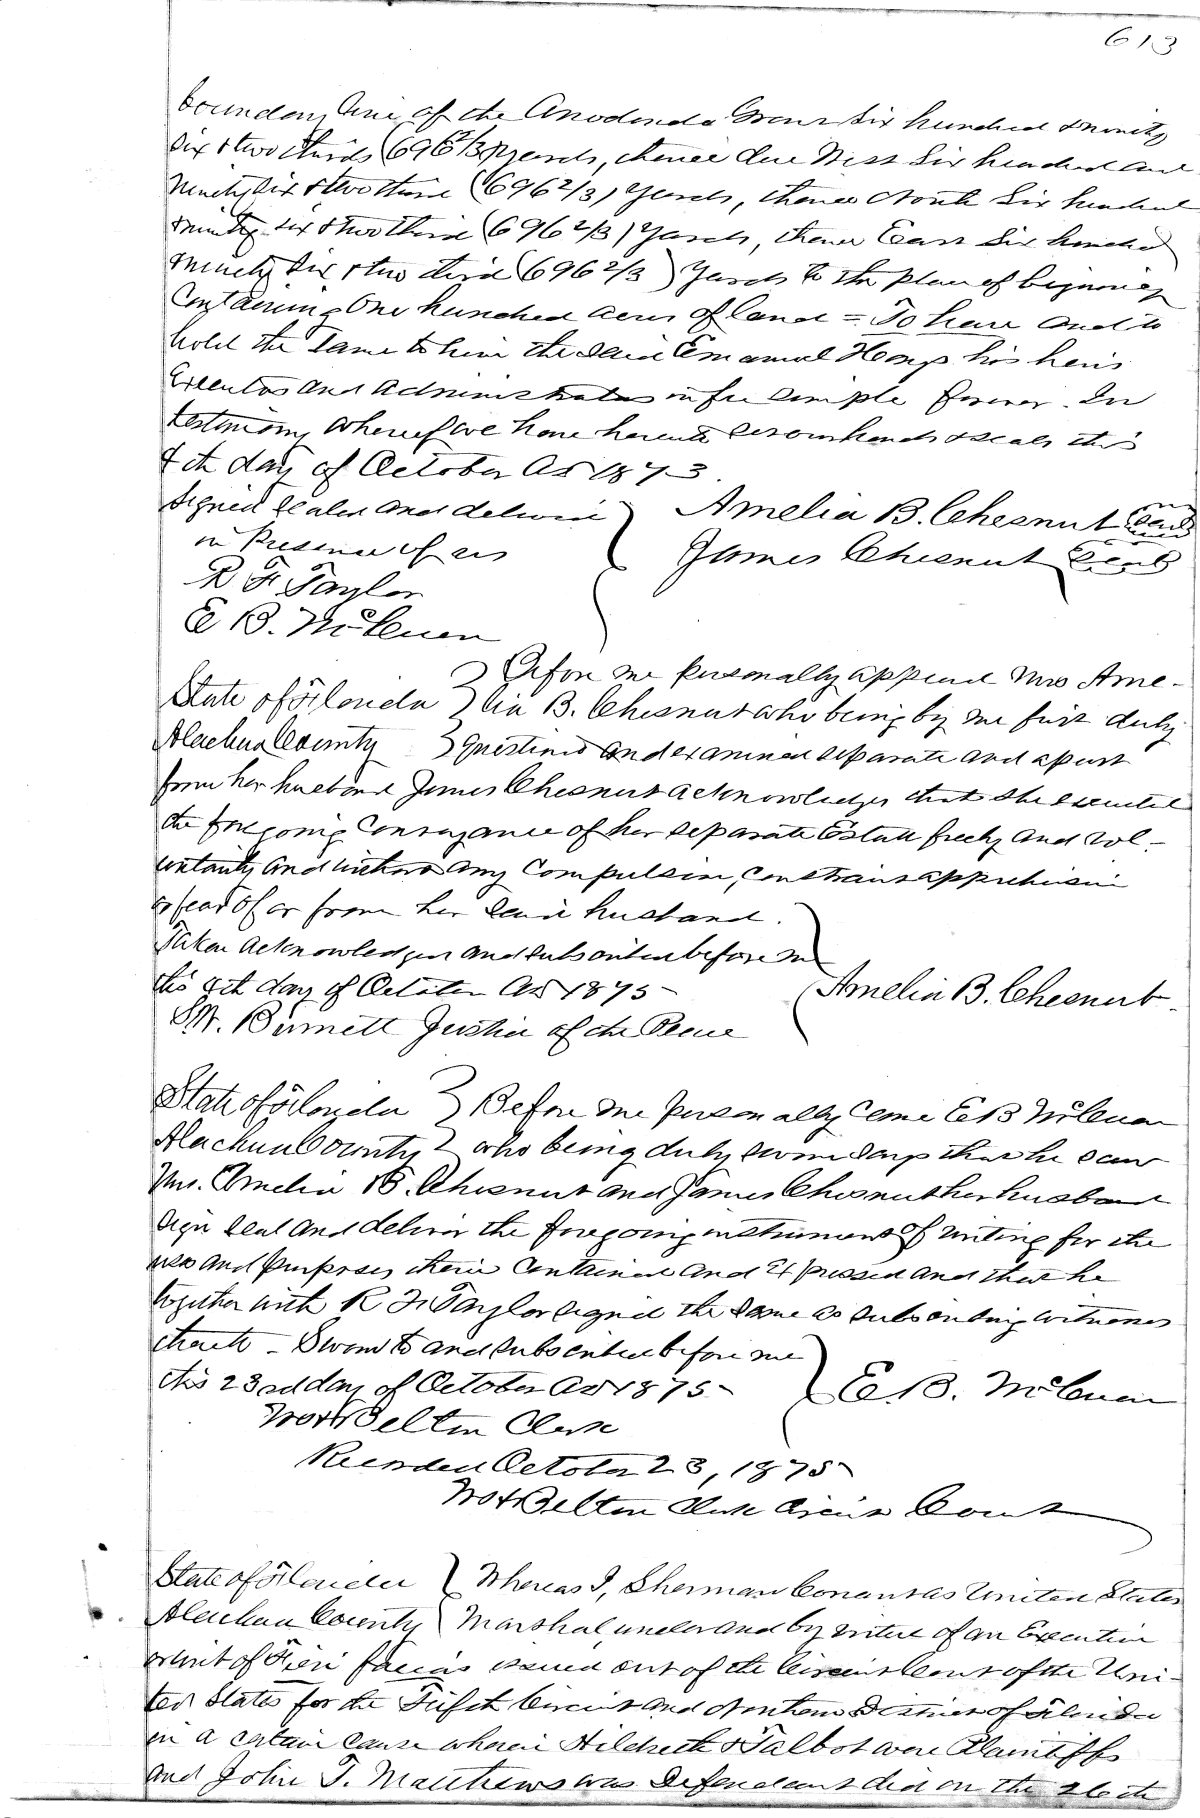 613
boundary line of the Arredondo Grant Six hundred & ninety
Six & two thirds (696 2/3) yards, thence due West Six hundred and
Ninety Six & two third (696 2/3) Yards, thence North Six hundred
& ninety six & two third (696 2/3) Yards, thence East Six hundred
& ninety Six & two third (696 2/3) Yards to the place of begining
Containing One hundred acres of land = To have and to
hold the Same to him the said Emanuel Hemp his heirs
Executors and Administrators in fee simple forever. In
testimony whereof we have hereunto set our hands & seals this
4th day of October AD 1873.
Signed Sealed and deliverd
in Presence of us
R F Taylor
E B. McCuen
Amelia B. Chesnut Seal
James Chesnut Seal
State of Florida
Alachua County
Before me personally appeared Mrs Ame-
lia B. Chesnut who being by me first duly
questioned and examined separate and apart
from her husband James Chesnut acknowledges that she executed
the foregoing Conveyance of her separate Estate freely and vol-
untarily and without any Compulsion, constraint apprehension
or fear of or from her said husband.
Taken acknowledged and subscribed before me
this 4th day of October AD 1875
Burnett Justice of the Peace
Amelia B. Chesnut
State of Florida
Alachua County
Before me personally Came E B McCuen
who being duly sworn says that he saw
Mrs. Amelia B. Chesnut and James Chesnut her husband
sign seal and deliver the foregoing instrument of writing for the
uses and purposes therein Contained and Expressed and that he
together with R F Taylor signed the Same as subscribing witnesses
thereto - Sworn to and subscribed before me
this 23rd day of October AD 1875
Belton Clerk
E. B. McCuen
Recorded October 23, 1875
Belton Clerk Circuit Court
State of Florida
Alachua County
Whereas I, Sherman Conant as United States
Marshal, under and by virtue of an Execution
or writ of Fieri facias issued out of the Circuit Court of the Uni-
ted States for the Fifth Circuit and Northern District of Florida
in a certain cause wherein Hildreth & Talbot were Plaintiffs
and John T. Matthews was Defendant did on the 26th